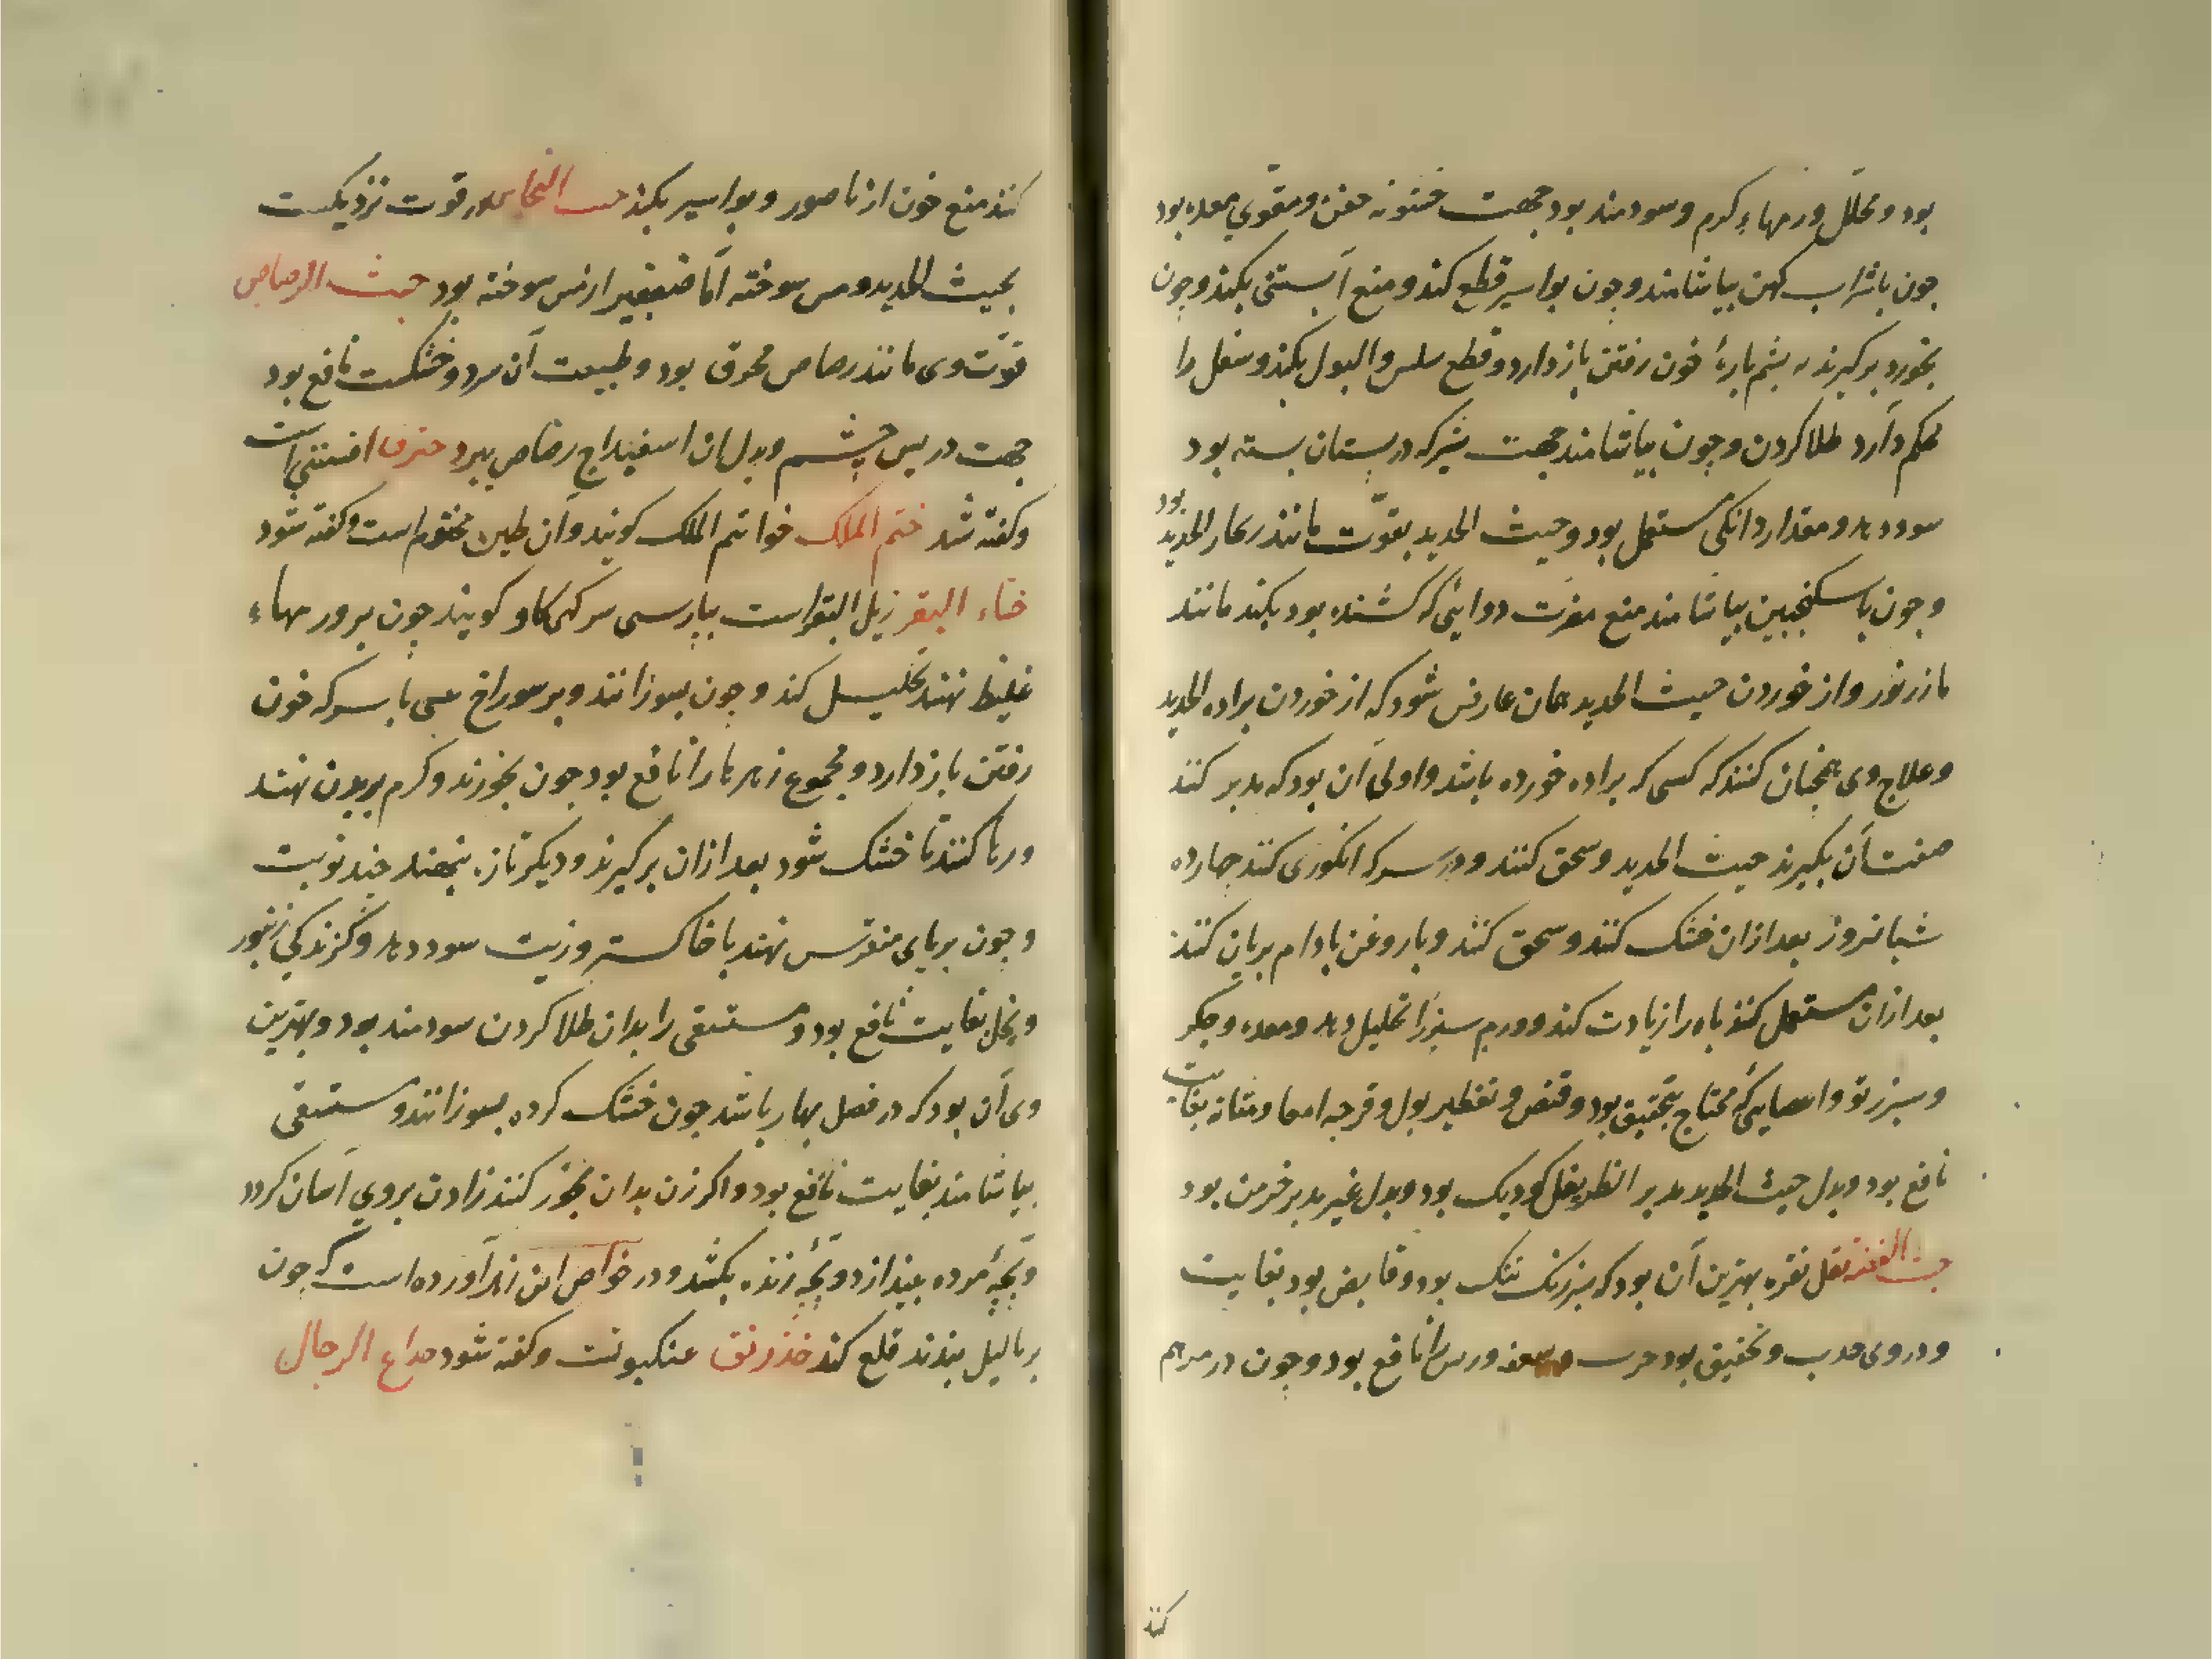 بود و محلّل ورمهاء کرم و سودمند بود جهت خشونه جفن و مقوّی معده بود
جون با شراب کهن بیاشامند وجون بواسیر قطع کند و منع آبستنی بکند وجون
بخورد برکیرند به بشم بارهٔ خون رفتن باز دارد و قطع سلس والبول بکند و سفل را
محکم دارد طلا کردن وجون بیاشامند جهت شیر که در بستان بسته بود
سود دهد و مقدار دانکی مستعمل بود و خبث الحدید بقوّت مانند زنجار الحدید بود
وجون با سکنجبین بیاشامند منع مضرت دوایئ که کشنده بود بکند مانند
مازریون و از خوردن خبث الحدید همان عارض شود که از خوردن براده الحدید
و علاج وی همجنان کنند که کسی که براده خورده باشد و اولی آن بود که مدبر کنند
صفت آن بکیرند خبث الحدید و سحق کنند و در سرکه انکوری کنند جهارده
شبانروز بعد ازان خشک کنند و سحق کنند و با روغن بادام بریان کنند
بعد ازان مستعمل کنند باه را زیادت کند و ورم سبرز را تحلیل دهد و معده و جکر
و سبرز تو و اعصایی که محتاج بتجفیف بود و قبض و تقطیر بول و قرحه امعا و مثانه بغایت
نافع بود و بدل خبث الحدید مدبر اطریفل کوجک بود و بدل غیر مدبر خرمن بود
خبث الفضة ثقل نقره بهترین آن بود که سبزرنک تنک بود و قابض بود بغایت
و در وی جذب و تجفیف بود جرب و سعفه و ریش را نافع بود وجون در مرهم
کنند
کنند منع خون از ناصور و بواسیر بکند خبث النحاس در قوت نزدیکست
بخبث الحدید و مس سوخته اما ضعیفتر از مس سوخته بود خبث الرصاص
قوّت وی مانند رصاص محرق بود و طبیعت آن سرد و خشکست نافع بود
جهت دریس جشم و بدل ان اسفیداج رصاص بیرد خترف افسنتین است
و کفته شد ختم الملک خواتم الملک کویند و آن طین مختوم است و کفته شود
خثاء البقر زبل البقر است ببارسی سرکین کاو کویند جون بر ورمهاء
غلیظ نهند تحلیل کند و جون بسوزانند و بر سوراخ بینی با سرکه خون
رفتن باز دارد و مجموع زهرها را نافع بود جون بخورند و کرم بر بدن نهند
و رها کنند تا خشک شود بعد ازان برکیرند و دیکر تازه بنهند جند نوبت
وجون بر بای منقرس نهند با خاکستر و زیت سود دهد و کزندکی زنبور
و نحل بغایت نافع بود و مستسقی را بدان طلا کردن سودمند بود و بهترین
وی آن بود که در فصل بهار باشد جون خشک کرده بسوزانند و مستسقی
بیاشامند بغایت نافع بود و اکر زن بدان بخور کنند زادن بروی آسان کردد
و بجّهٔ مرده بیندازد و بجّهٔ زنده بکشد و در خواص ابن زهر آورده است که جون
بر ثالیل بندند قلع کند خذرنق عنکبوتست و کفته شود خداع الرجال